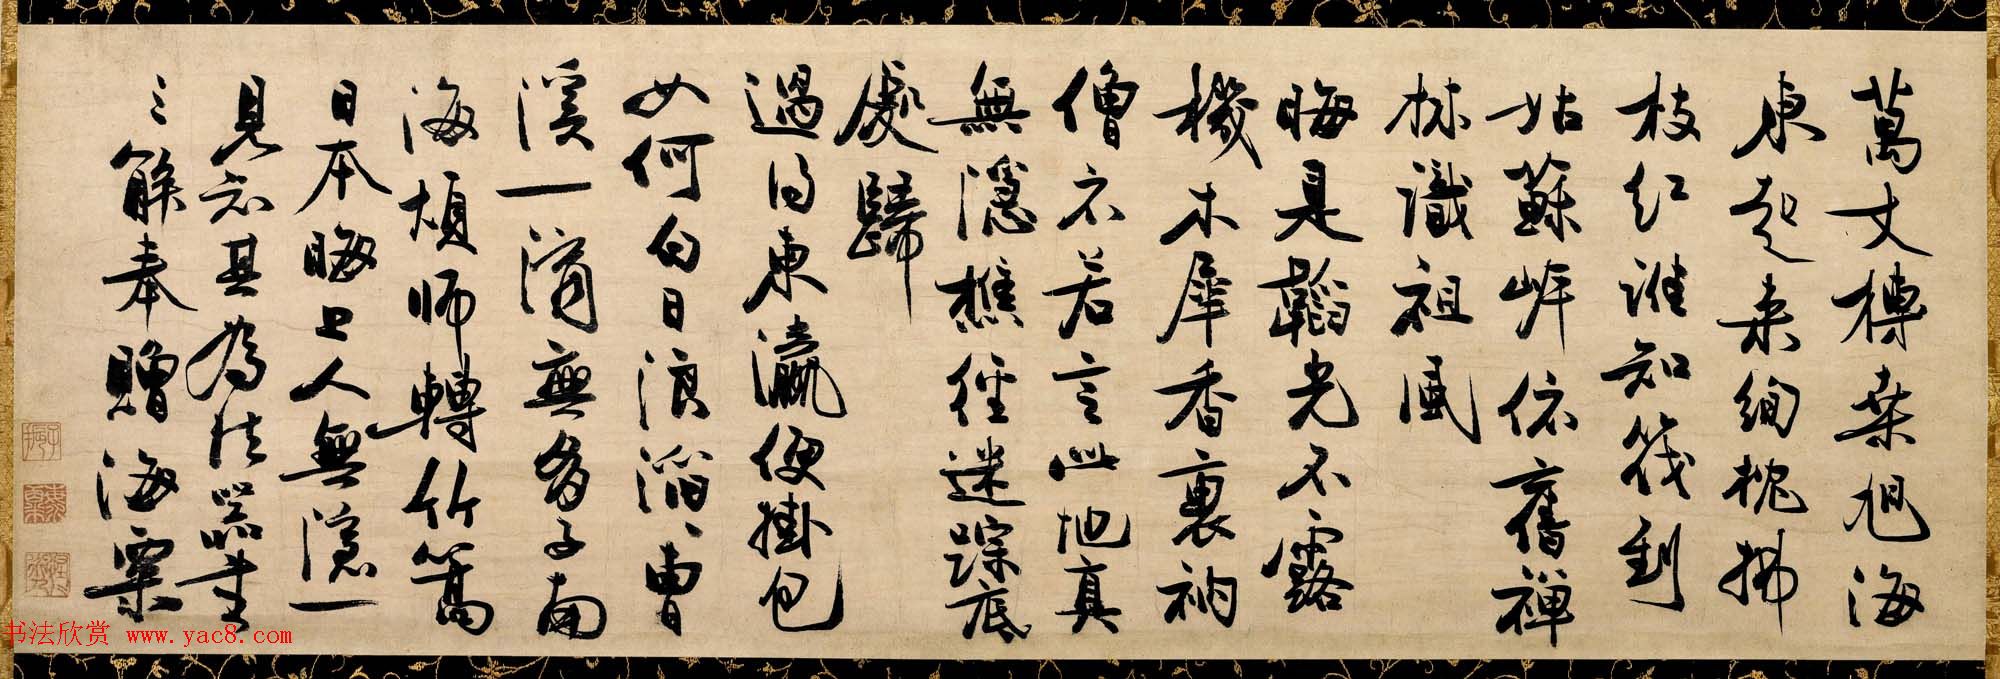 萬丈榑桑旭海
東起来絢拂
枝紅誰知筏到
姑蘇岸依舊禅
林識祖風
晦是韜光不露
機木犀香裏衲
僧衣若言此地真
無隱樵徑迷踪底
處歸
過得東瀛便掛包
如何白日浪滔〻曹
溪一滴無多子南
海煩師轉竹篙
日本晦上人無隱一
見知其為法器書
三解奉贈海粟
书法欣赏 www.yac8.com